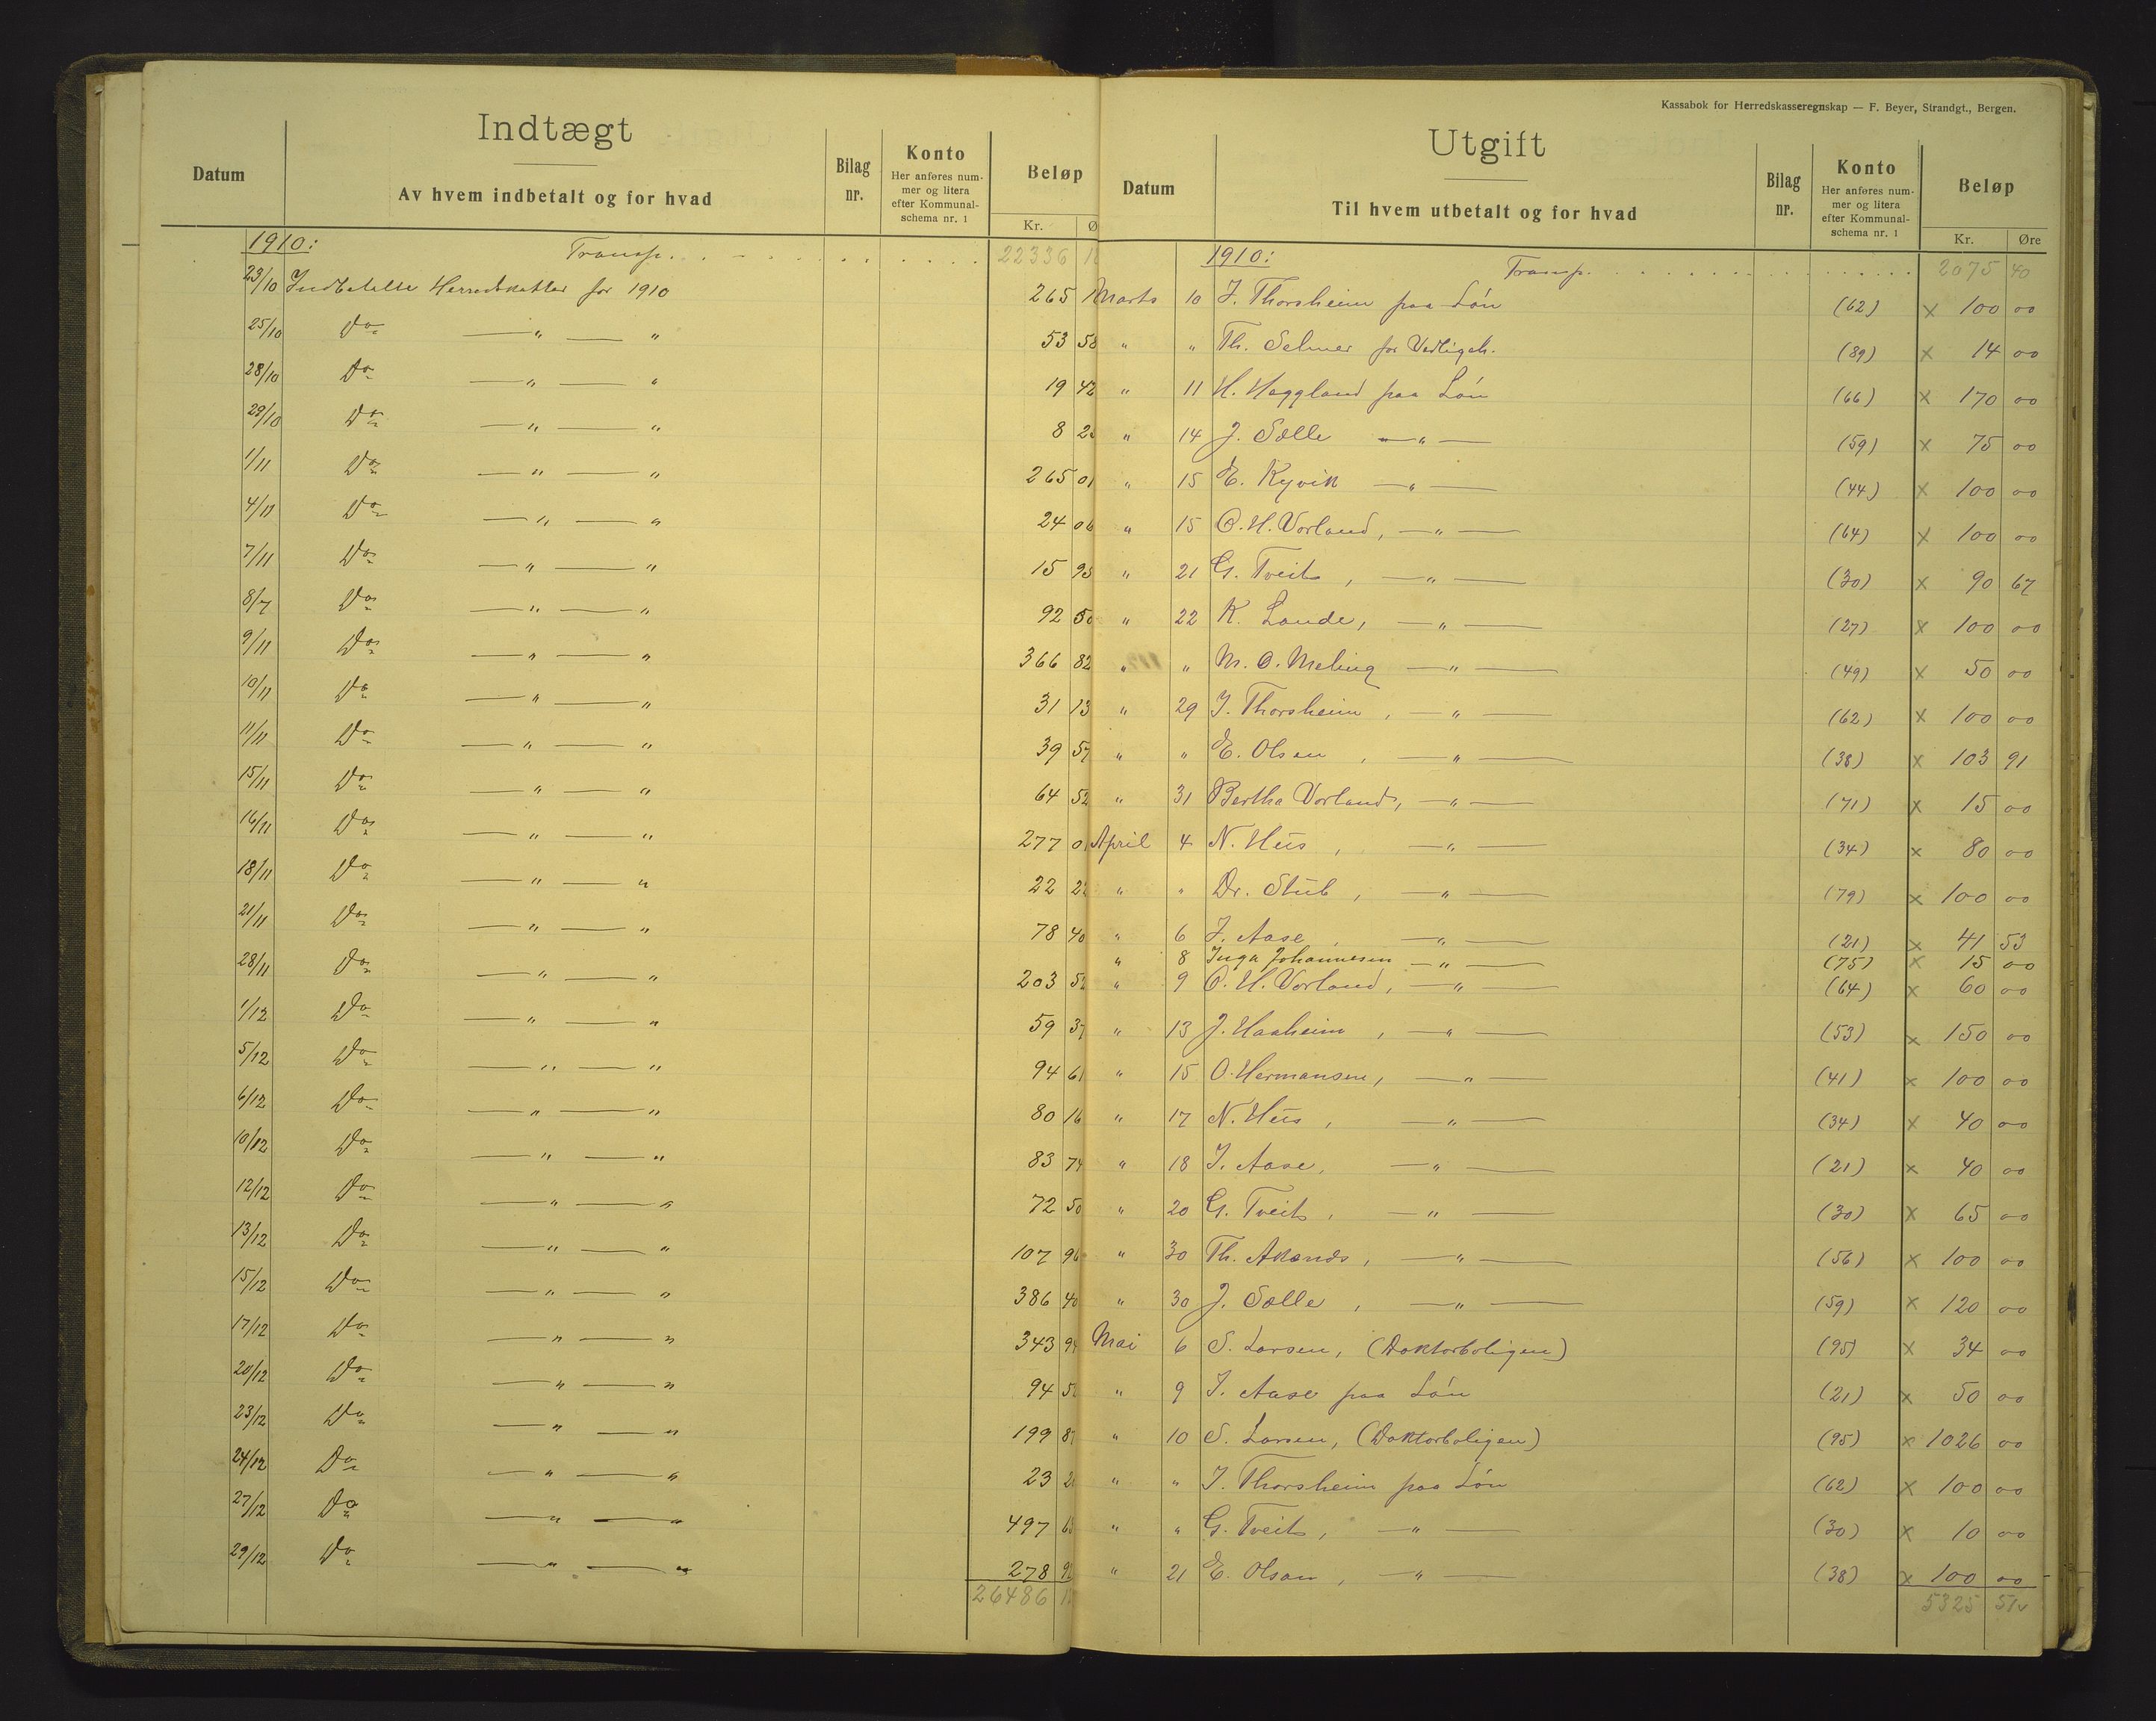 Indtægt
Datum
Av hvem indbetalt og for hvad
Bilag nr.
Konto
Her anføres num-
mer og litera
efter Kommunal-
schema nr. 1
Beløp
Kr. Ø
1910: Transp. 22336
23/10 Indbetalte Herredskatter for 1910 265
25/10 Do — " — " 53 58
28/10 Do — " — " 19 42
29/10 Do — " — " 8
1/11 Do — " — " 265 01
4/11 Do — " — " 24 06
7/11 Do — " — " 15 95
8/7 Do — " — " 92 50
9/11 Do — " — " 366 82
10/11 Do — " — " 31 13
11/11 Do — " — " 39 57
15/11 Do — " — " 64 52
16/11 Do — " — " 277
18/11 Do — " — " 22 22
21/11 Do — " — " 78 40
28/11 Do — " — " 203
1/12 Do — " — " 59 37
5/12 Do — " — " 94 61
6/12 Do — " — " 80 16
10/12 Do — " — " 83 74
12/12 Do — " — " 72 50
13/12 Do — " — " 107 96
15/12 Do — " — " 386 40
17/12 Do — " — " 343
20/12 Do — " — " 94
23/12 Do — " — " 199
24/12 Do — " — " 23
27/12 Do — " — " 497
29/12 Do — " — " 278
26486
Kassabok for Herredskasseregnskap — F. Beyer, Strandgt., Bergen.
Utgift
Datum
Til hvem utbetalt og for hvad
Bilag nr.
Konto
Her anføres num-
mer og litera
efter Kommunal-
schema nr. 1
Beløp
Kr. Øre
1910: Transp. 2075 40
Marts 10 J. Thorsheim paa Løn (62) x 100 00
" " Th. Selmer for Vedligeh. (89) x 14 00
" 11 H. Haggland paa Løn (66) x 170 00
" 14 J. Sælle — " — (59) x 75 00
" 15 E. Kyvik — " — (44) x 100 00
" 15 O. H. Vorland, — " — (64) x 100 00
" 21 G. Tveit, — " — (30) x 90 67
" 22 K. Lande, — " — (27) x 100 00
" " M. O. Meling — " — (49) x 50 00
" 29 J. Thorsheim, — " — (62) x 100 00
" " E. Olsen, — " — (38) x 103 91
" 31 Bertha Vorland, — " — (71) x 15 00
April 4 N. Hus, — " — (34) x 80 00
" " Dr. Stub, — " — (79) x 100 00
" 6 J. Aase, — " — (21) x 41 53
" 8 Inga Johannesen — " — (75) x 15 00
" 9 O. H. Vorland, — " — (64) x 60 00
" 13 J. Haaheim, — " — (53) x 150 00
" 15 O. Hermansen, — " — (41) x 100 00
" 17 N. Hus, — " — (34) x 40 00
" 18 J. Aase, — " — (21) x 40 00
" 20 G. Tveit, — " — (30) x 65 00
" 30 Th. Økland, — " — (56) x 100 00
" 30 J. Sælle, — " — (59) x 120 00
Mai 6 S. Larsen, (Doktorboligen) (95) x 34 00
" 9 J. Aase paa Løn (21) x 50 00
" 10 S. Larsen, (Doktorboligen) (95) x 1026 00
" " J. Thorsheim paa Løn (62) x 100 00
" " G. Tveit, — " — (30) x 10 00
" 21 E. Olsen, — " — (38) x 100 00
5325 51